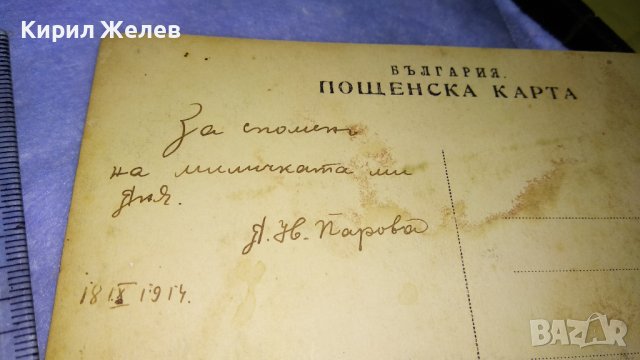 Кирил Желев
БЪЛГАРИЯ.
ПОЩЕНСКА КАРТА
За споменъ
на миличката ми
Аня.
А. Ив. Парова
18 IX 1914.
BAZAR
bg